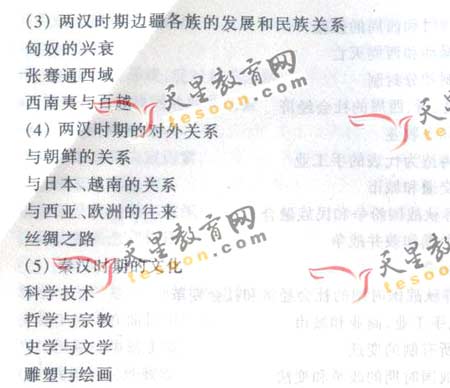 (3) 两汉时期边疆各族的发展和民族关系
匈奴的兴衰
张骞通西域
西南夷与百越
天星教育网
tesoon.com
天星教育网
tesoon.com
(4) 两汉时期的对外关系
与朝鲜的关系
与日本、越南的关系
与西亚、欧洲的往来
丝绸之路
天星教育网
tesoon.com
天星教育网
tesoon.com
(5) 秦汉时期的文化
科学技术
哲学与宗教
史学与文学
雕塑与绘画